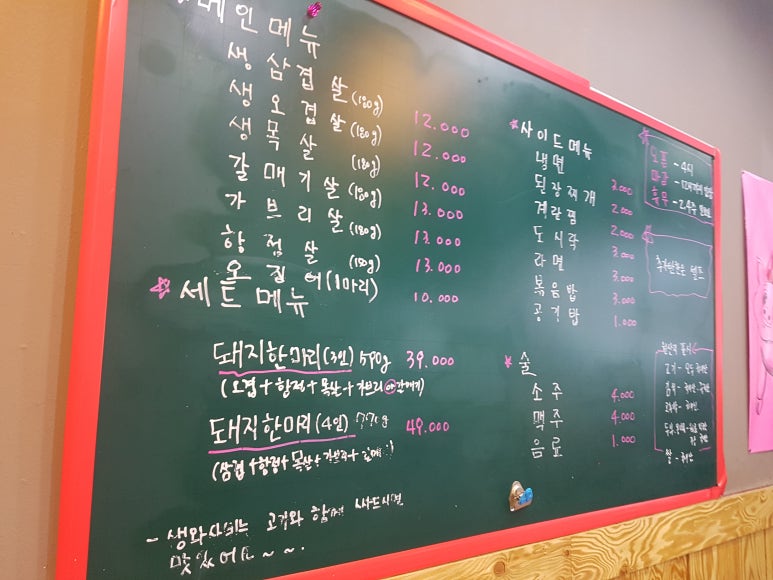 메인메뉴
생삼겹살(180g) 12.000
생오겹살(180g) 12.000
생목살(180g) 12.000
갈매기살(180g) 13.000
가브리살(180g) 13.000
항정살(180g) 13.000
오징어(1마리) 10.000
세트메뉴
돼지한마리(3인) 590g 39.000
(오겹+항정+목살+가브리 or 갈매기)
돼지한마리(4인) 770g 49.000
(삼겹+항정+목살+가브리+갈매기)
고기와 함께
맛있어요~~.
사이드메뉴
냉면 3.000
된장찌개 2.000
계란찜 2.000
도시락 3.000
라면 3.000
볶음밥 3.000
공기밥 1.000
술
소주 4.000
맥주 4.000
음료 1.000
오픈 - 4시
마감 -
휴무 - 2.4주
추가반찬은 셀프
원산지 표시
고기 -
김치 -
쌀 - 국내산